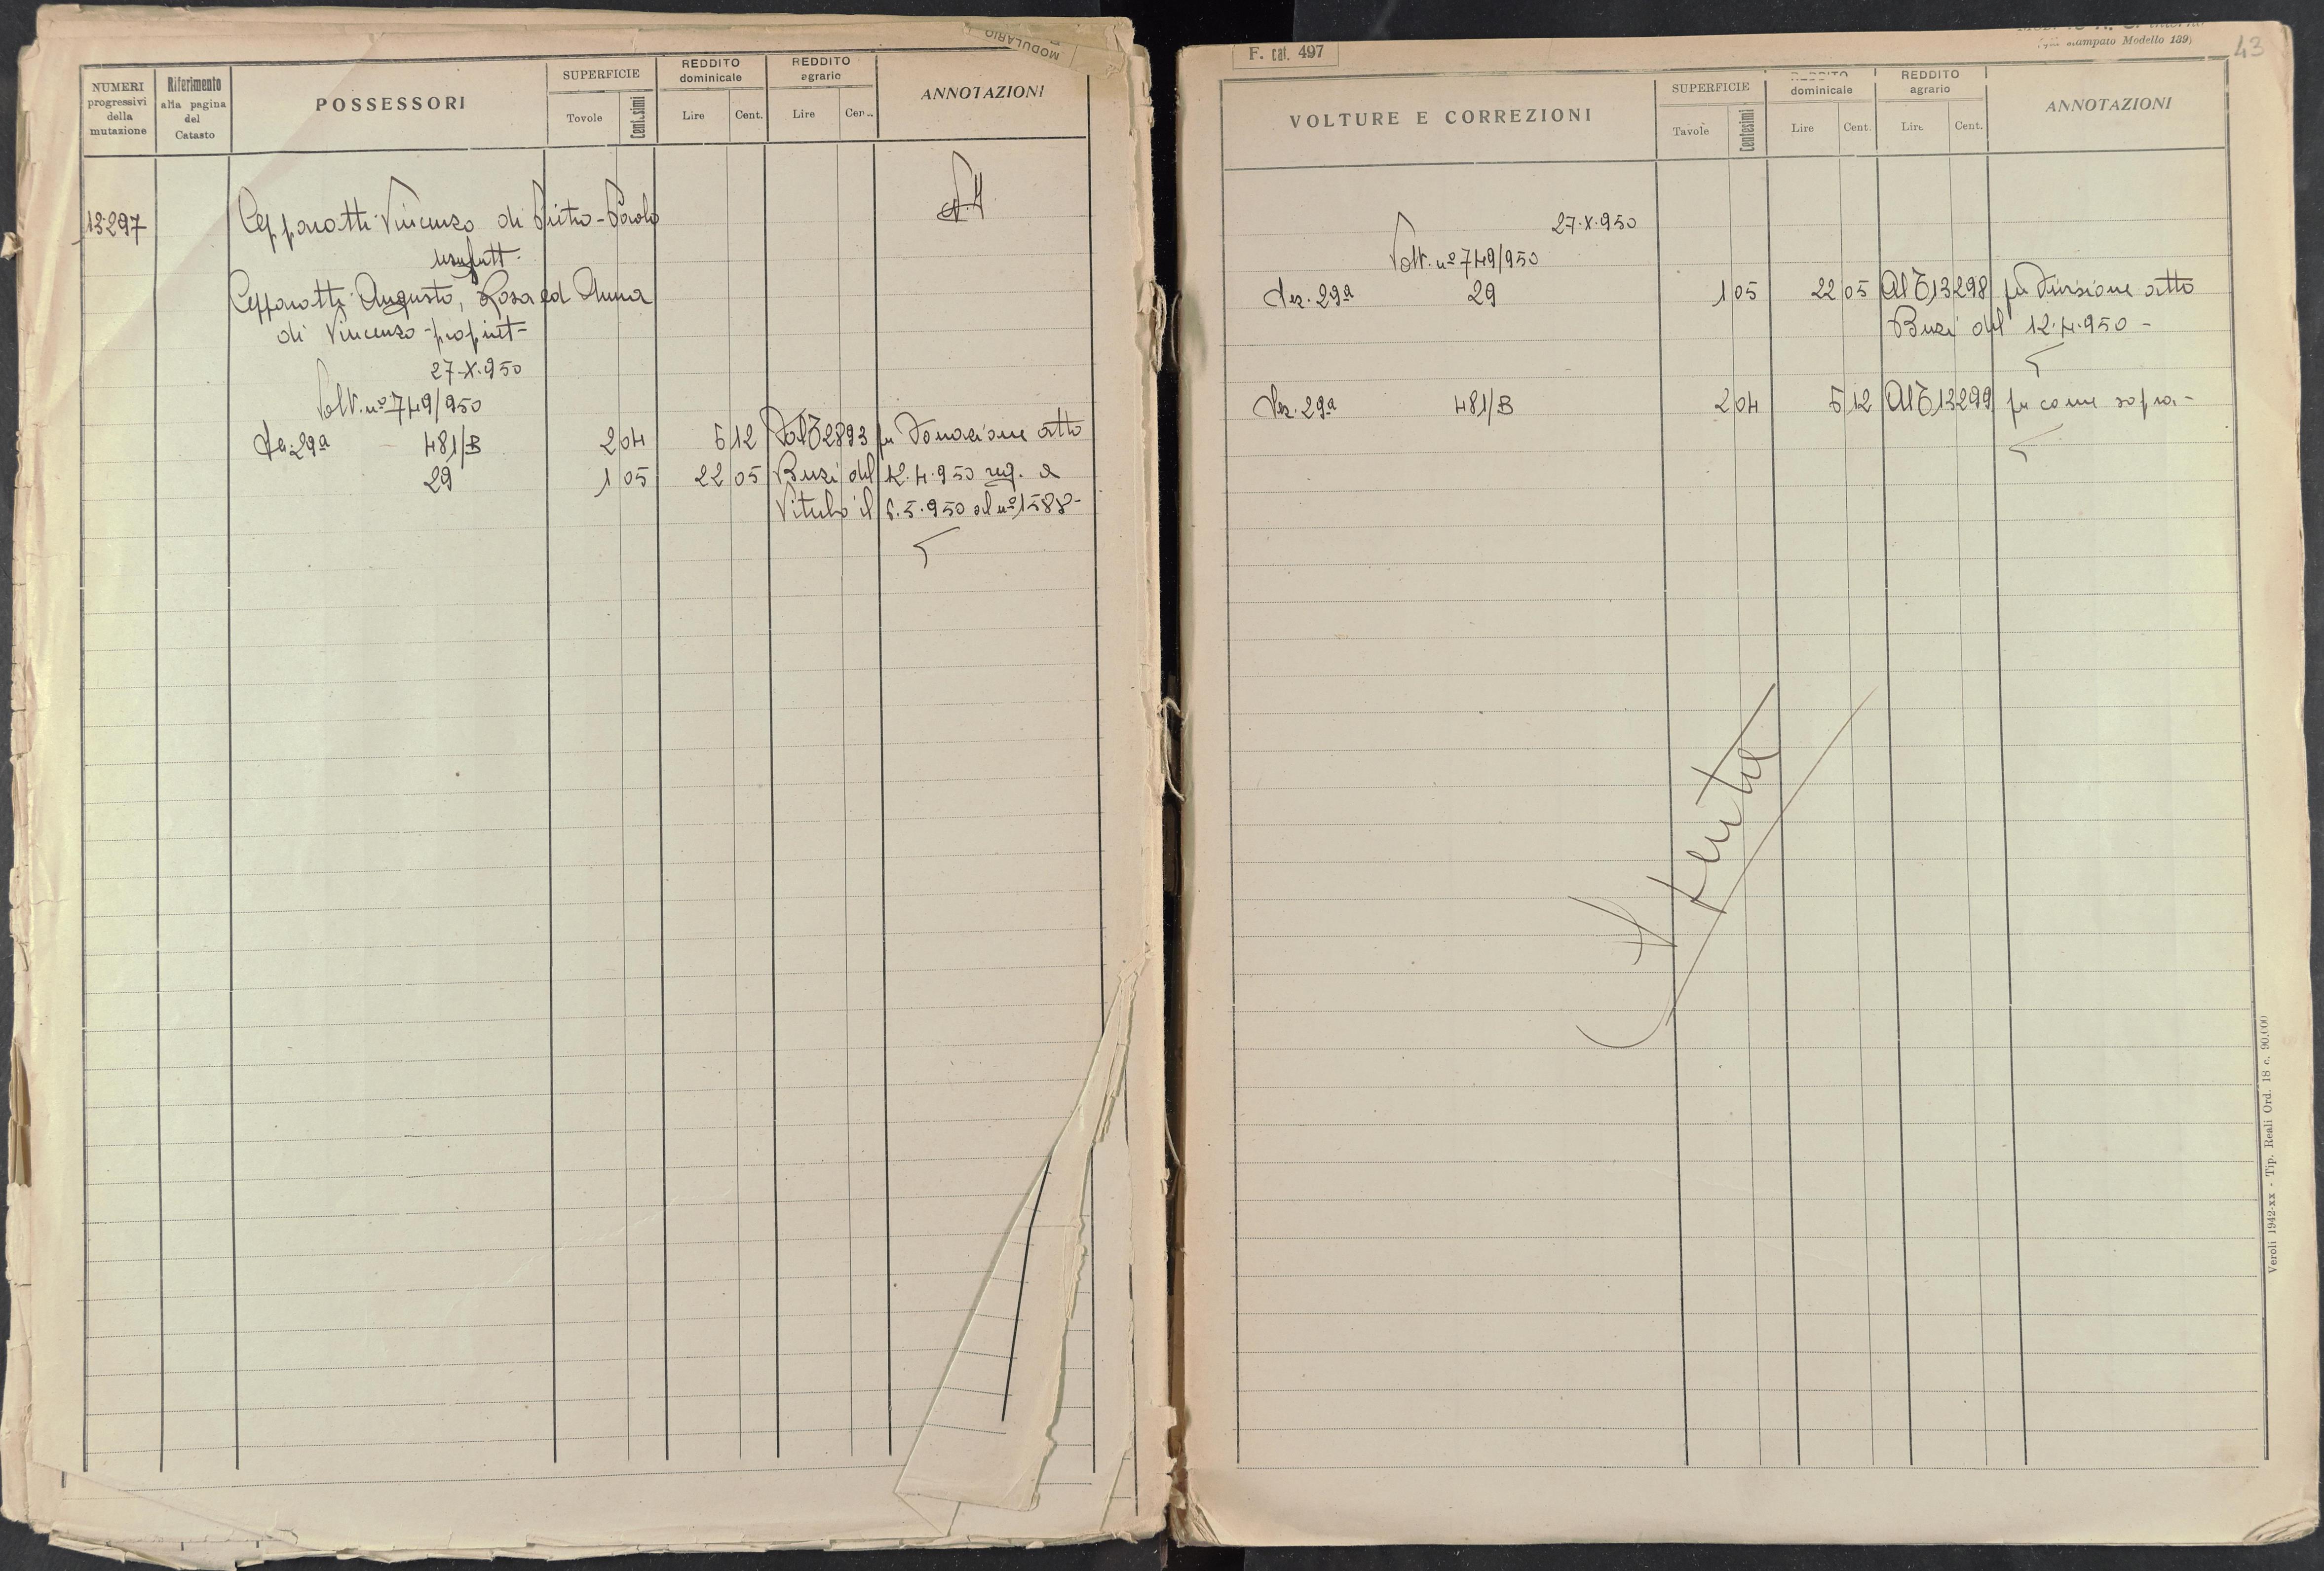 MODULARIO
NUMERI progressivi della mutazione
Riferimento alla pagina del Catasto
POSSESSORI
SUPERFICIE
Tavole
Centesimi
REDDITO dominicale
Lire
Cent.
REDDITO agrario
Lire
Cen..
ANNOTAZIONI
13297
Cepparotti Vincenzo di Pietro-Paolo
usufrutt.
Cepparotti Augusto, Rosa ed Anna
di Vincenzo - propriet-
27-X-950
Volt. nº 749/950
Sez. 29ª 481/B 2 04 5 12 Dal T 2893 per Donazione atto
29 1 05 22 05 Buzi del 12.4.950 reg. a
Viterbo il 6.5.950 al nº 1588-
F. cat. 497
(già stampato Modello 139)
43
VOLTURE E CORREZIONI
SUPERFICIE
Tavole
Centesimi
REDDITO dominicale
Lire
Cent.
REDDITO agrario
Lire
Cent.
ANNOTAZIONI
27-X-950
Volt. nº 749/950
Sez. 29ª 29 1 05 22 05 Al T 13298 per Divisione atto
Buzi del 12.4.950 -
Sez. 29ª 481/B 2 04 5 12 Al T 13299 per come sopra -
Spenta
Veroli 1942-xx - Tip. Reali Ord. 18 c. 90.000